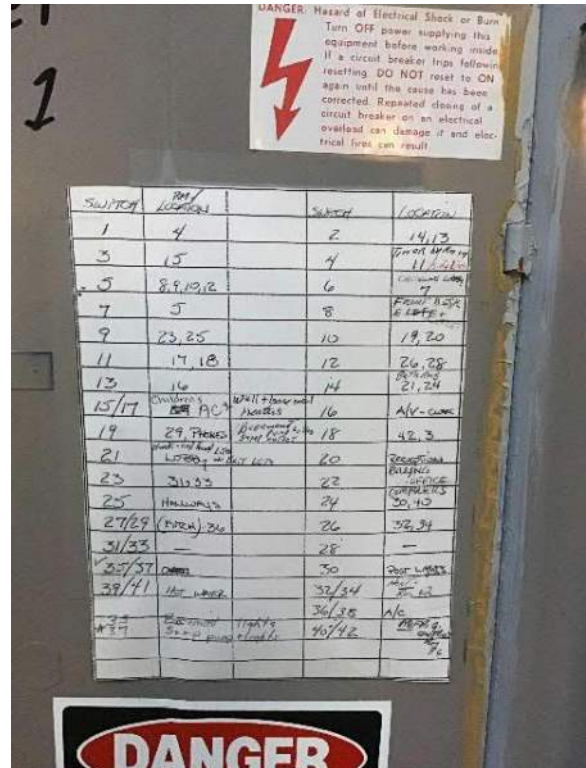 1
DANGER: Hazard of Electrical Shock or Burn
Turn OFF power supplying this
equipment before working inside
If a circuit breaker trips following
resetting DO NOT reset to ON
again until the cause has been
corrected. Repeated closing of a
circuit breaker on an electrical
overload can damage it and elec-
trical fires can result
SWITCH RM/ LOCATION SWITCH LOCATION
1 4 2 14,13
3 15 4 11
5 8,9,10,12 6 7
7 5 8 FRONT DESK
9 23,25 10 19,20
11 17,18 12 26,28
13 16 14 21,24
15/17 Children's AC Wall + basement Heaters 16 A/V-
19 29, PHONES Basement 18 42,3
21 LOBBY 20 RECEPTION
23 31,33 22 BILLING OFFICE
25 HALLWAYS 24 COMPUTERS 30,40
27/29 36 26 32,34
31/33 — 28 —
35/37 30 POST LIGHTS
39/41 HOT WATER 32/34
36/38 A/C
Basement lights 40/42
pump
DANGER